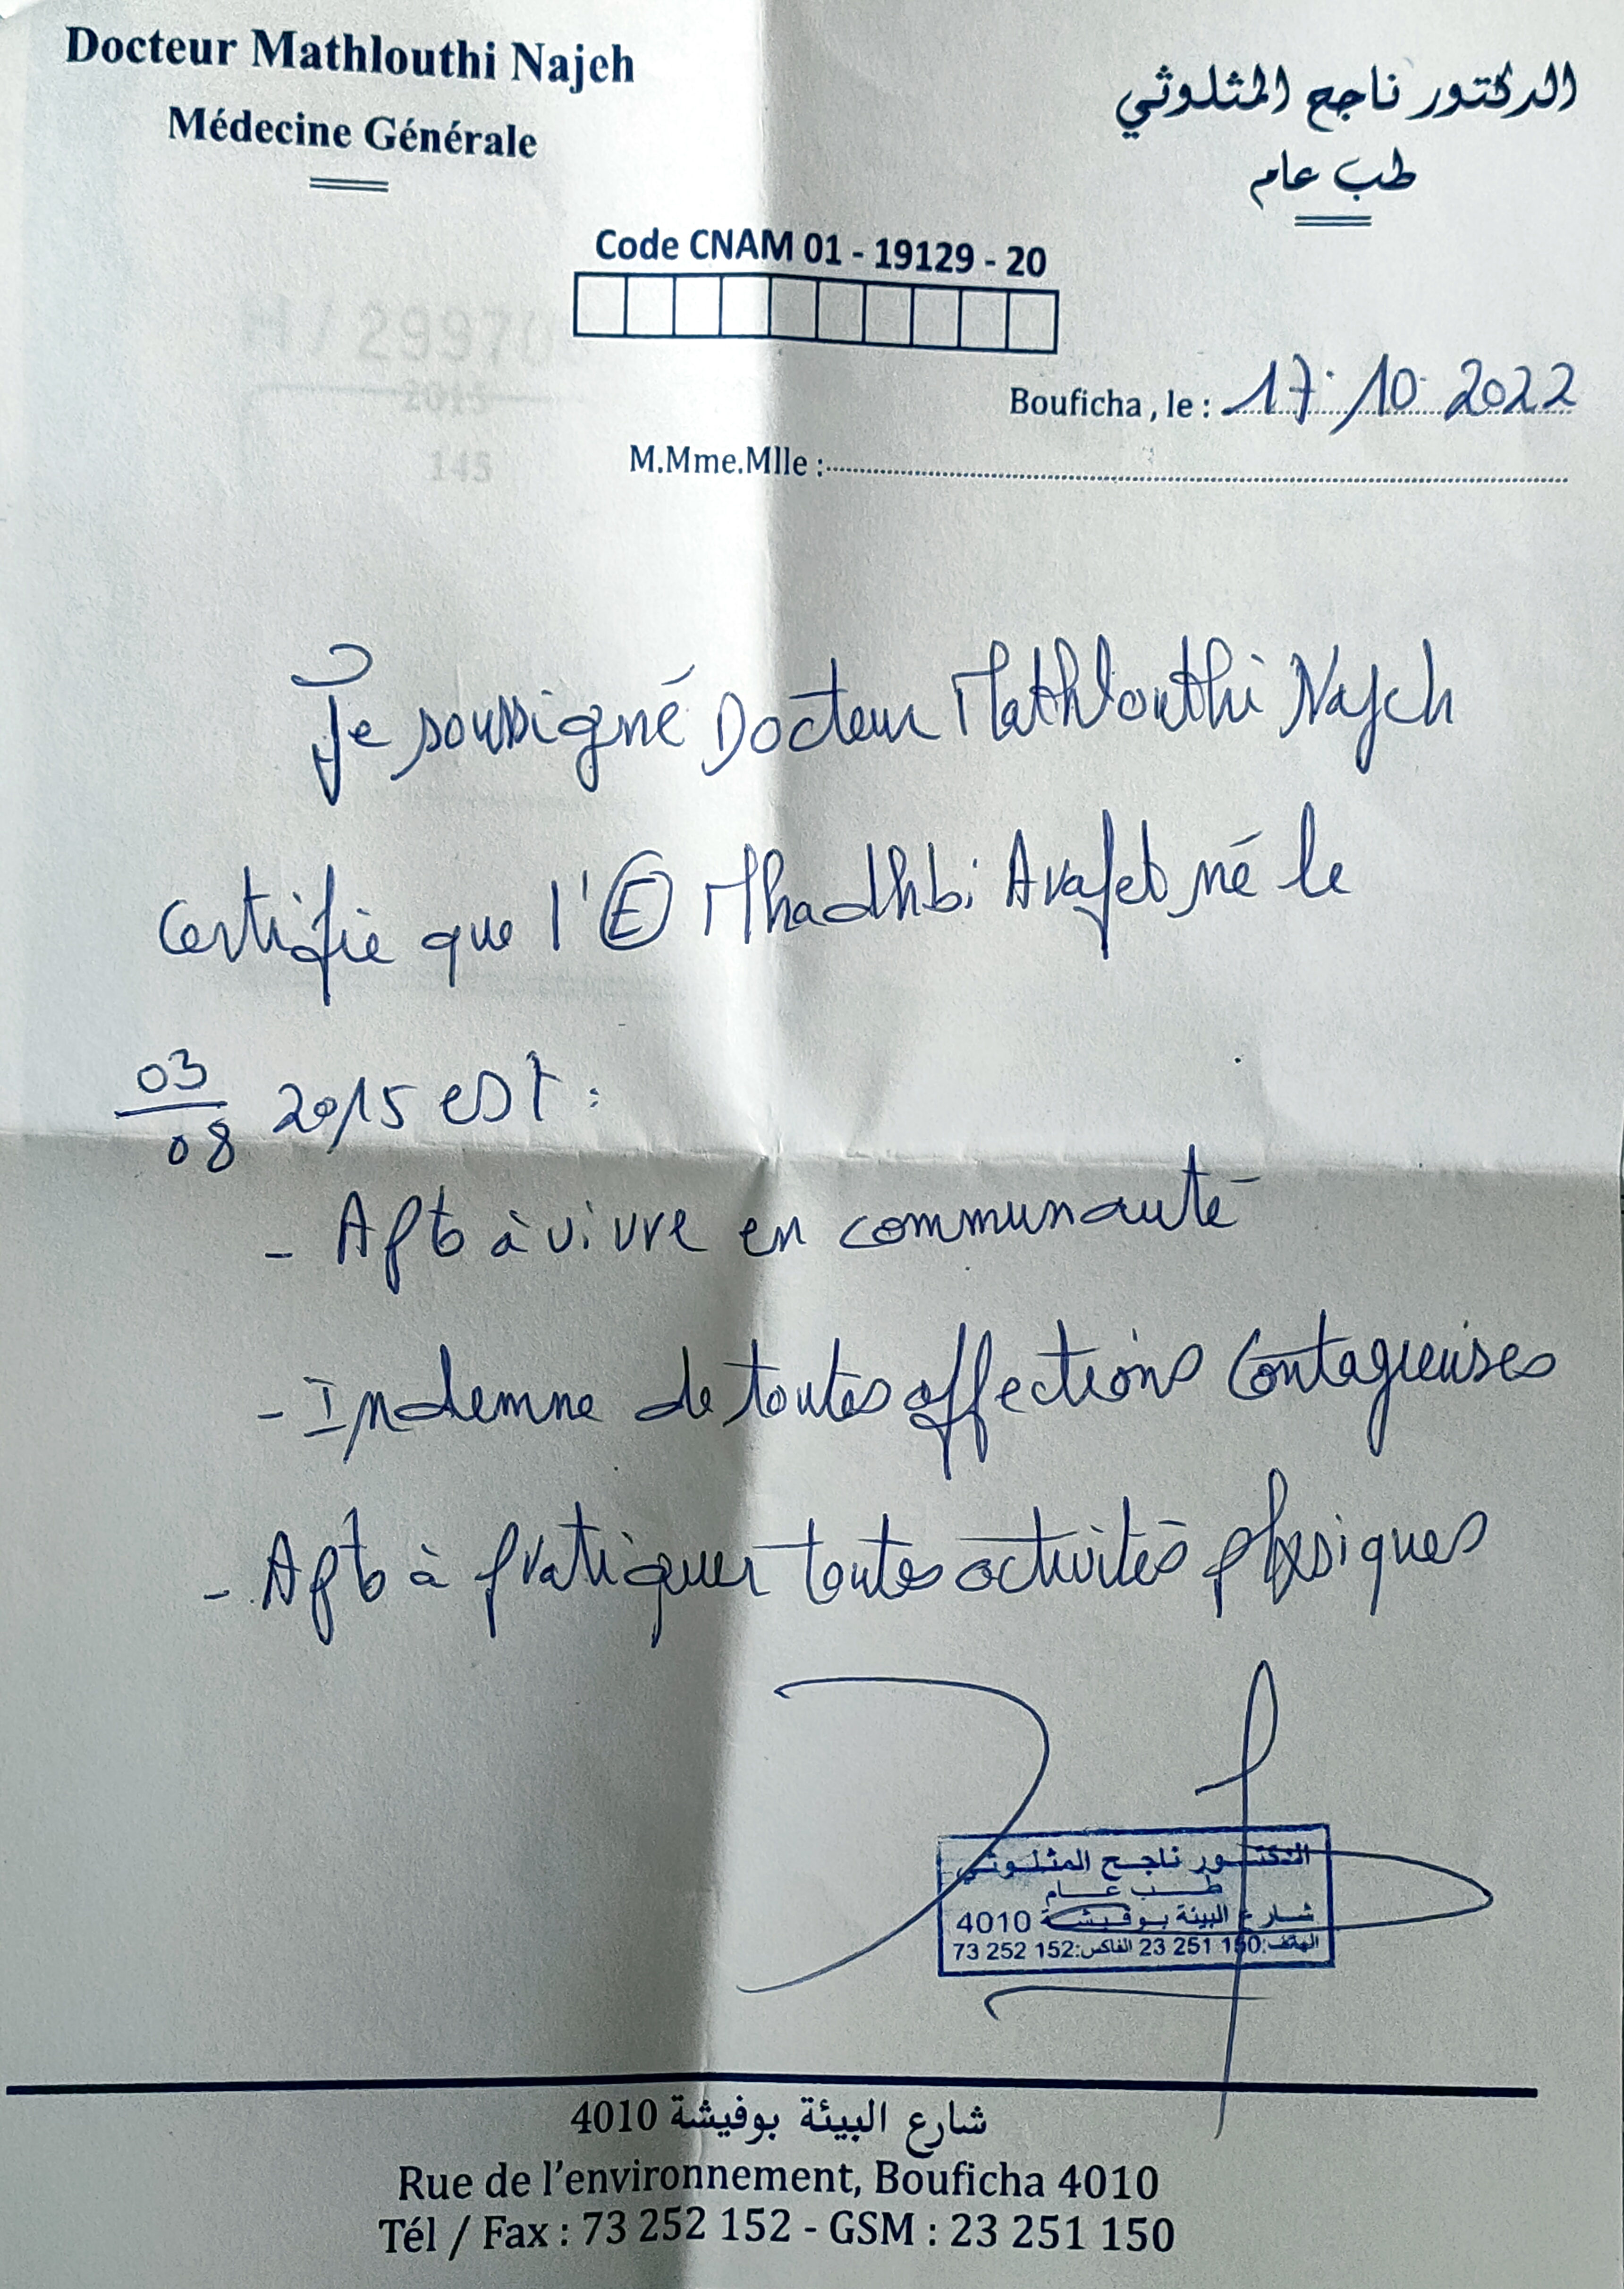 Docteur Mathlouthi Najeh
Médecine Générale
الدكتور ناجح المثلوثي
طب عام
Code CNAM 01 - 19129 - 20
Bouficha , le : 17 10 2022
M.Mme.Mlle :
H / 29970
2015
145
Je soussigné Docteur Mathlouthi Najeh
certifie que l'E Mhadhbi Arafet né le
03/08 2015 est :
- Apte à vivre en communauté
- Indemne de toutes affections contagieuses
- Apte à pratiquer toutes activités physiques
الدكتور ناجح المثلوثي
طب عام
شارع البيئة بوفيشة 4010
الهاتف:150 251 23 الفاكس:152 252 73
شارع البيئة بوفيشة 4010
Rue de l'environnement, Bouficha 4010
Tél / Fax : 73 252 152 - GSM : 23 251 150